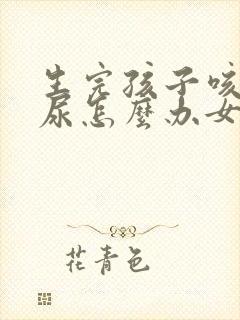 生完孩子咳
尿怎麼办女
花青色